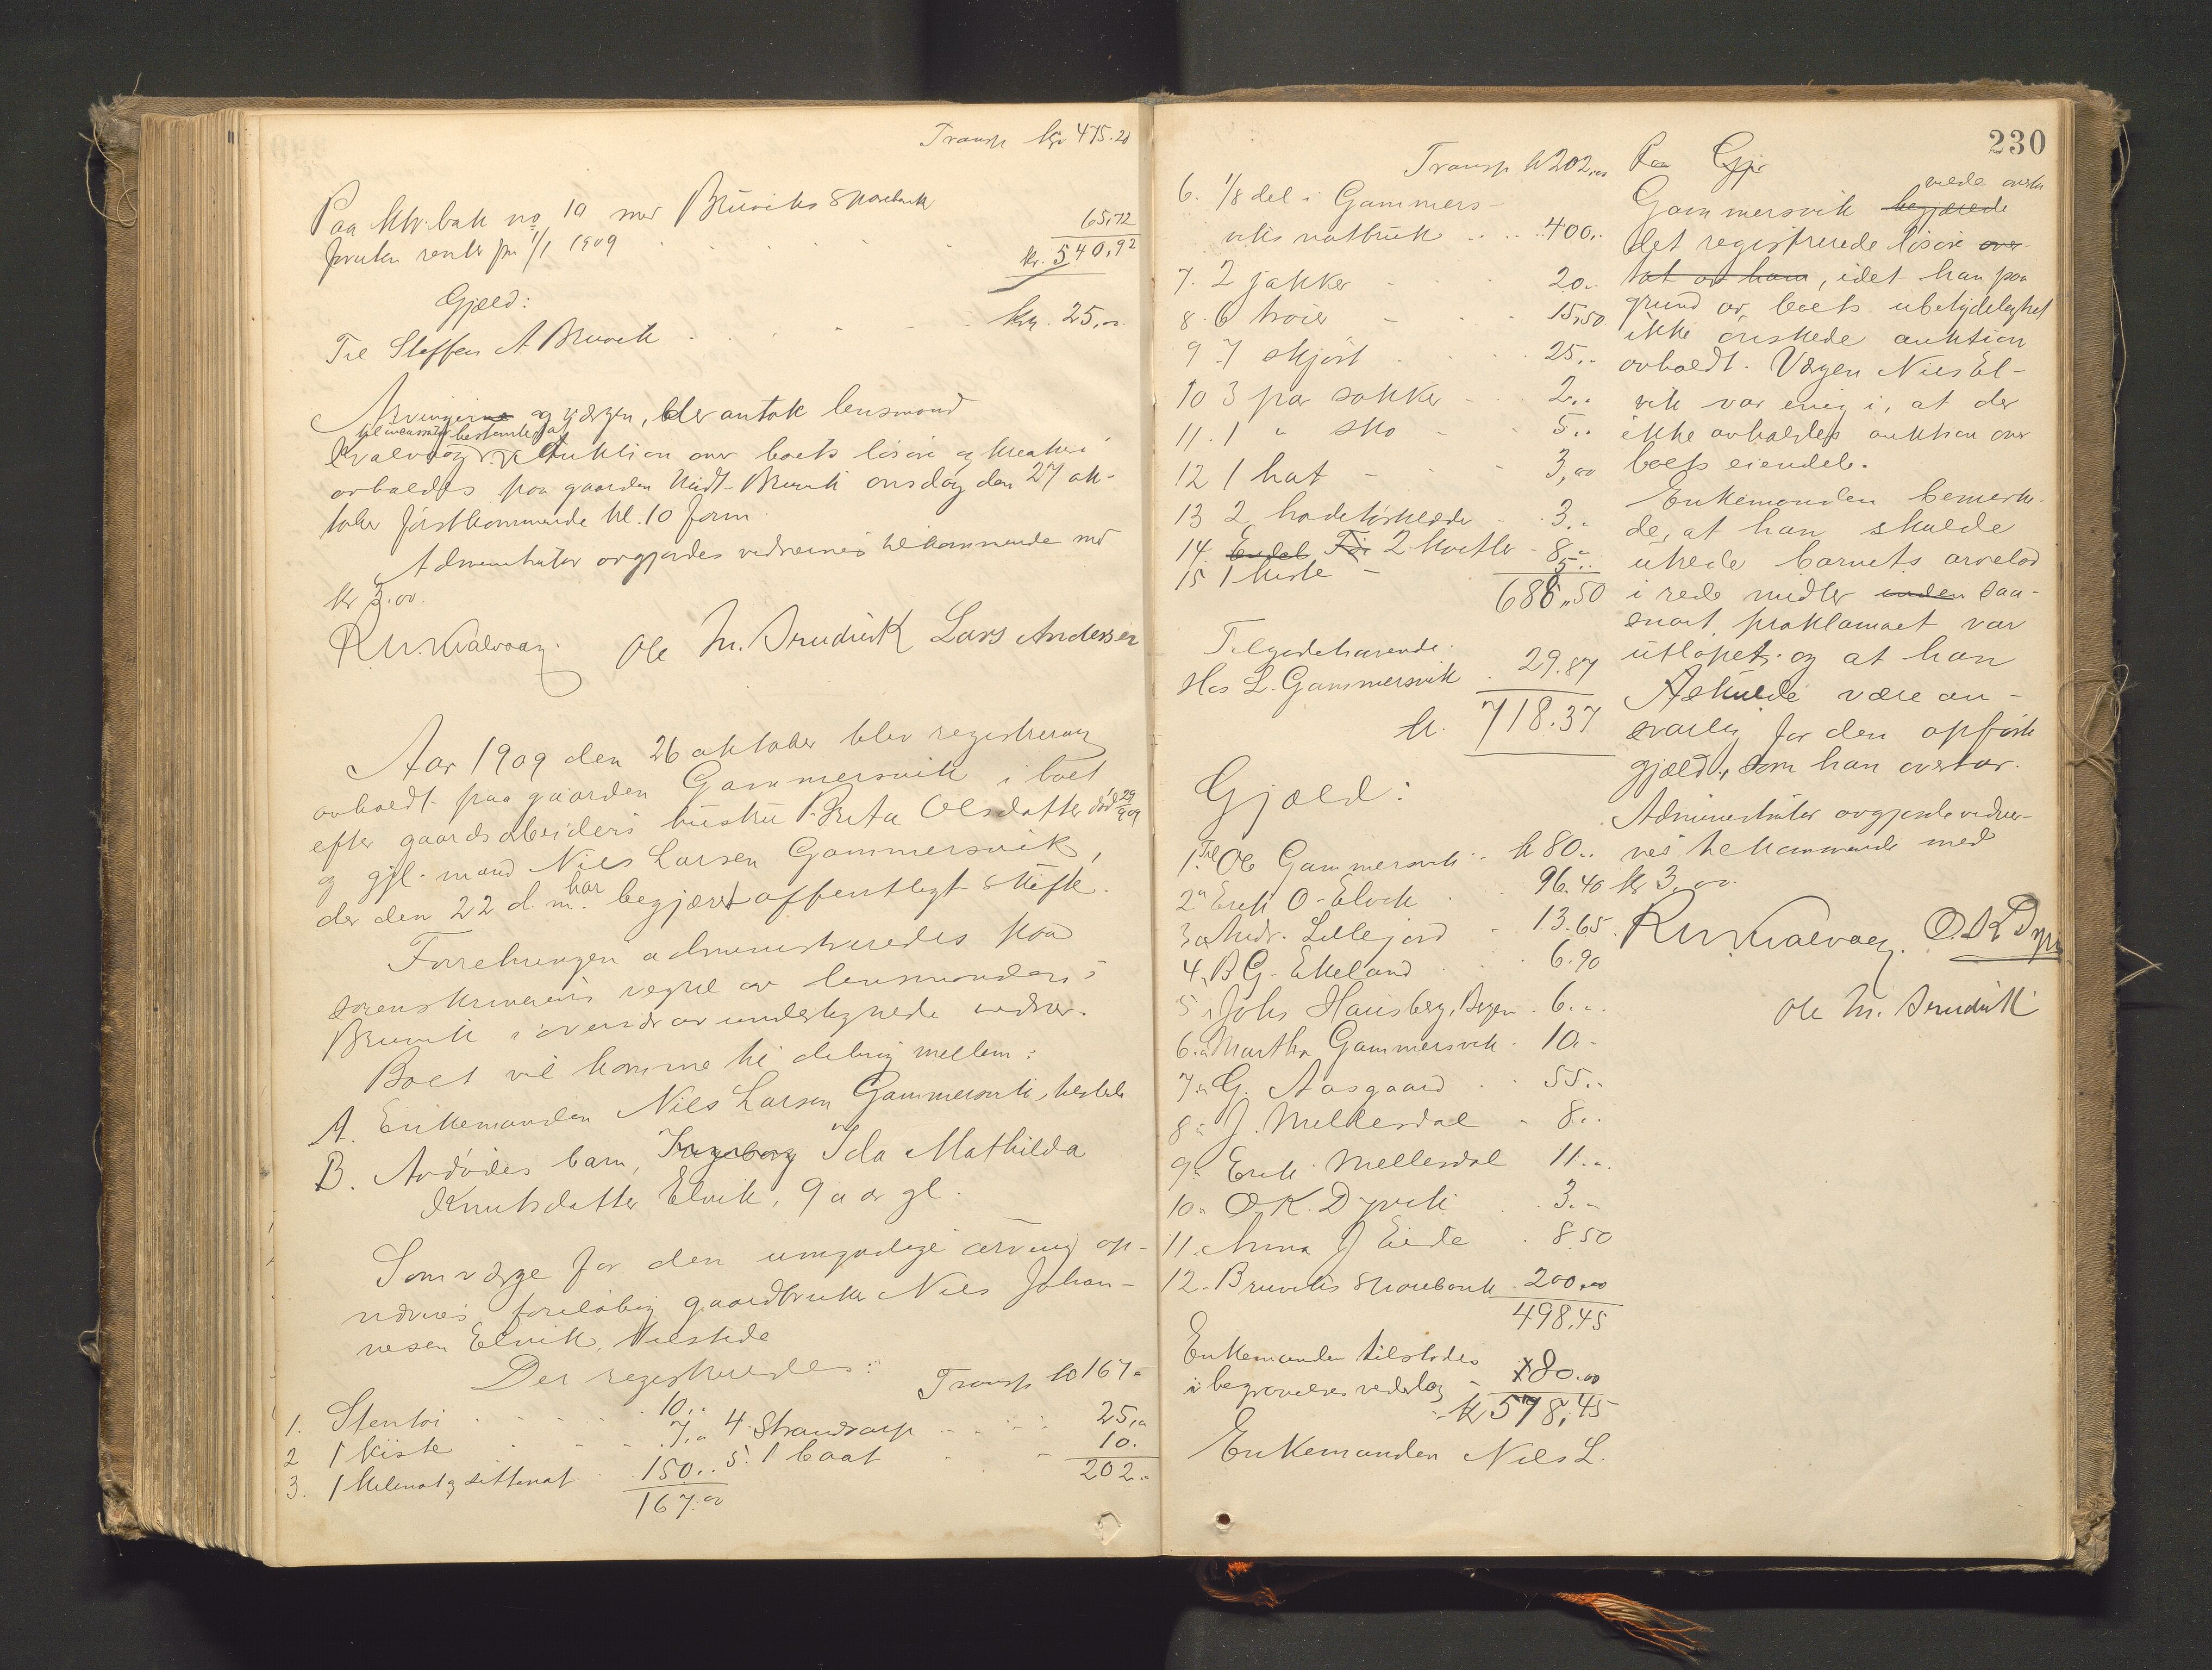 Transp kr 475.20
Paa ktr. bak no 10 med Bruviks Sparebank
foruten renter fra 1/1 1909 . . . . . 65,72
kr. 540,92
Gjæld:
Til Steffen A Bruvik . . . . kr. 25,00
Arvingerne og værgen, der antok lensmand
Kvalvaag til incassator bestemte at Auktion over boets løsøre og kreaturer
avholdes paa gaarden Midt-Bruvik onsdag den 27 ok-
tober førstkommende kl. 10 form.
Administrator avgjordes vedrørende tilkommende med
kr 3.00.
R M. Kvalvaag. Ole M. Bruvik Lars Andersen
Aar 1909 den 26 oktober blev registrering
avholdt paa gaarden Gammersvik i boet
efter gaardsarbeiders hustru Brita Olsdatter død 29/9 09
og gjl. mand Nils Larsen Gammersvik,
der den 22 d. m. har begjært offentligt skifte.
Forretningen administreredes paa
sorenskriverens vegne av lensmanden i
Bruvik i overvær av undertegnede vidner.
Boet vil komme til deling mellem:
A. Enkemanden Nils Larsen Gammersvik, tilstede
B. Avdødes barn, Ingeborg Ida Mathilda
Knutsdatter Elvik, 9 aar gl.
Som værge for den umyndige arving op-
nævnes foreløbig gaardbruker Nils Johan-
nesen Elvik, tilstede
Der registreredes:
1. Stentøi . . . . 10..
2 1 kiste . . . 7,,
3. 1 kilenot og sittenot . 150..
167.00
Transp kr 167,,
4. Strandvarp . . . 25,,
5. 1 baat . . 10.
202..
230
Transp kr 202,00
6. 1/8 del i Gammers-
viks notbruk . . . 400,.
7. 2 jakker . . . 20..
8. 6 trøier . . 15,50
9. 7 skjørt . . . 25..
10 3 par sokker . . 2..
11. 1 " sko . . 5..
12 1 hat - . - 3,00
13 2 hodetørklæder . 3..
14. Endel Tøi 2 kofter - 8..
15 1 kiste - 5..
688,50
Tilgodehavende:
Hos L. Gammersvik . 29.87
kr. 718.37
Gjæld:
1. Til Ole Gammersvik - kr 80..
2 " Erik O. Elvik . 96.40
3 " Andr. Lillejord - 13.65
4 " B. G. Ekeland . . 6.90
5 " Johs Hausberg, Bergen . 6..
6. " Martha Gammersvik . 10.-
7 " G. Aasgaard . . 55..
8 " J. Mellesdal - 8..
9 " Erik Mellesdal 11..
10 " O. K. Dyvik . 3.-
11. Anna J Eide . 8.50
12. Bruviks Sparebank . 200,00
498.45
Enkemanden tilstodes
i begravelses vederlag - 80.00
kr 578,45
Enkemanden Nils L.
Paa Gje
Gammersvik begjærede vilde overta
det registrerede løsøre over-
tat av ham, idet han paa
grund av boets ubetydelighet
ikke ønskede auktion
avholdt. Værgen Nils El-
vik var enig i, at der
ikke avholdtes auktion over
boets eiendele.
Enkemanden bemerke-
de, at han skulde
utrede barnets arvelod
i rede midler inden saa-
snart proklamaet var
utløpet, og at han
skulde være an-
svarlig for den opførte
gjæld, som han overtar.
Administrator avgjorde vidner-
nes tilkommende med
kr 3,00.
R M. Kvalvaag. O. K Dyvik
Ole M. Bruvik